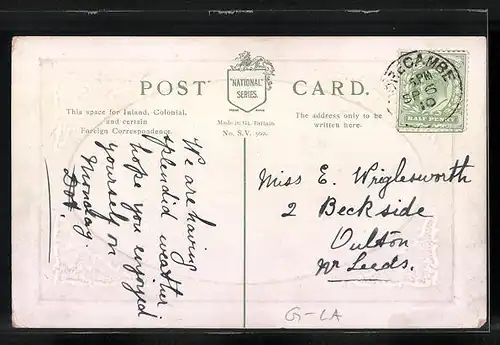 POST CARD.
"NATIONAL"
SERIES.
This space for Inland, Colonial,
and certain
Foreign Correspondence.
Made in Gt. Britain
No. S.V. 502.
The address only to be
written here.
MORECAMBE
5 PM
SP 6
10
HALF PENNY
We are having
splendid weather
hope you enjoyed
yourself on
Monday.
Miss E. Wriglesworth
2 Beckside
Oulton
Nr Leeds.
G-LA